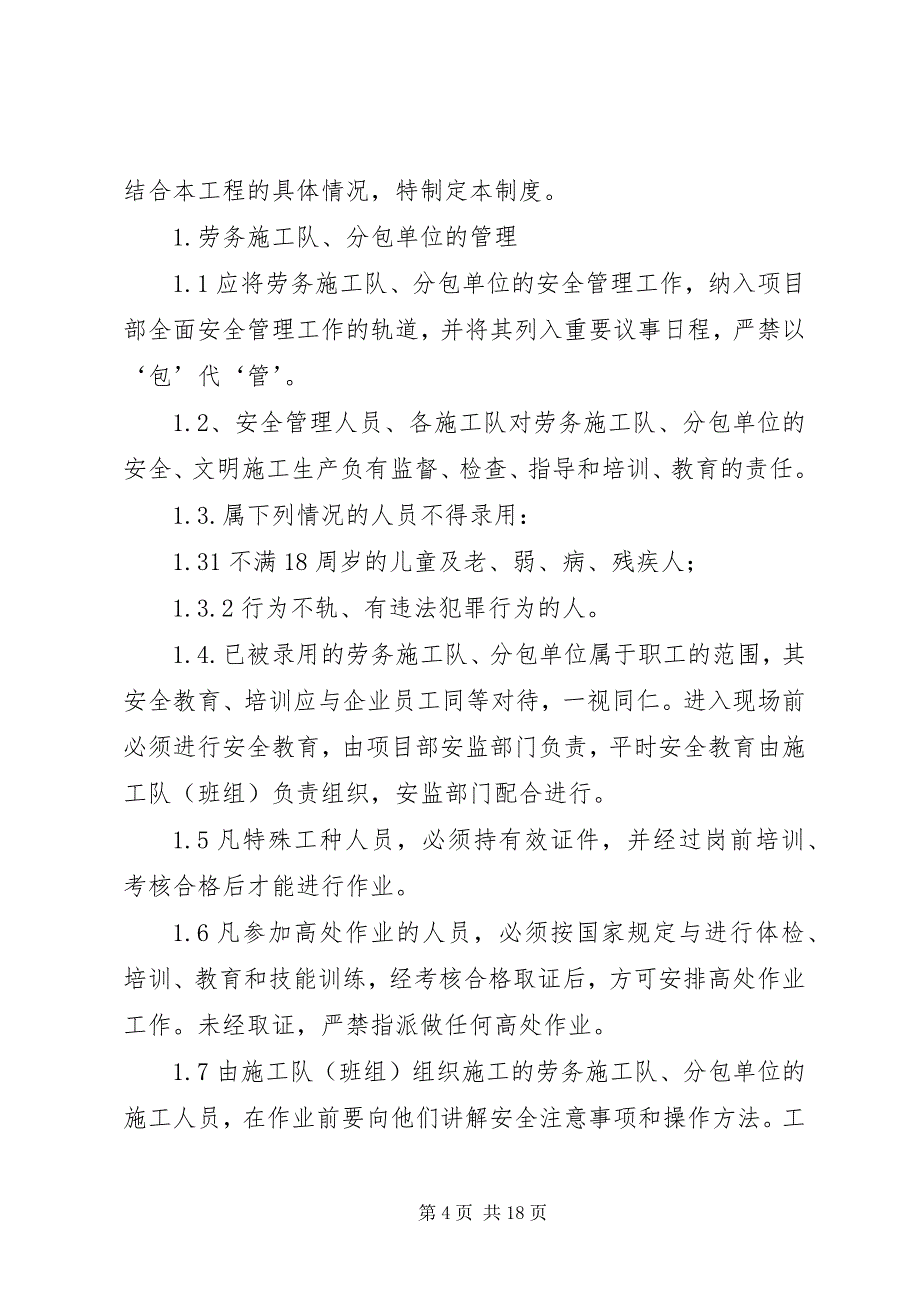 结合本工程的具体情况，特制定本制度。
1.劳务施工队、分包单位的管理
1.1 应将劳务施工队、分包单位的安全管理工作，纳入项目
部全面安全管理工作的轨道，并将其列入重要议事日程，严禁以
‘包’代‘管’。
1.2、安全管理人员、各施工队对劳务施工队、分包单位的
安全、文明施工生产负有监督、检查、指导和培训、教育的责任。
1.3.属下列情况的人员不得录用：
1.31 不满 18 周岁的儿童及老、弱、病、残疾人；
1.3.2 行为不轨、有违法犯罪行为的人。
1.4.已被录用的劳务施工队、分包单位属于职工的范围，其
安全教育、培训应与企业员工同等对待，一视同仁。进入现场前
必须进行安全教育，由项目部安监部门负责，平时安全教育由施
工队（班组）负责组织，安监部门配合进行。
1.5 凡特殊工种人员，必须持有效证件，并经过岗前培训、
考核合格后才能进行作业。
1.6 凡参加高处作业的人员，必须按国家规定与进行体检、
培训、教育和技能训练，经考核合格取证后，方可安排高处作业
工作。未经取证，严禁指派做任何高处作业。
1.7 由施工队（班组）组织施工的劳务施工队、分包单位的
施工人员，在作业前要向他们讲解安全注意事项和操作方法。工
第 4 页 共 18 页